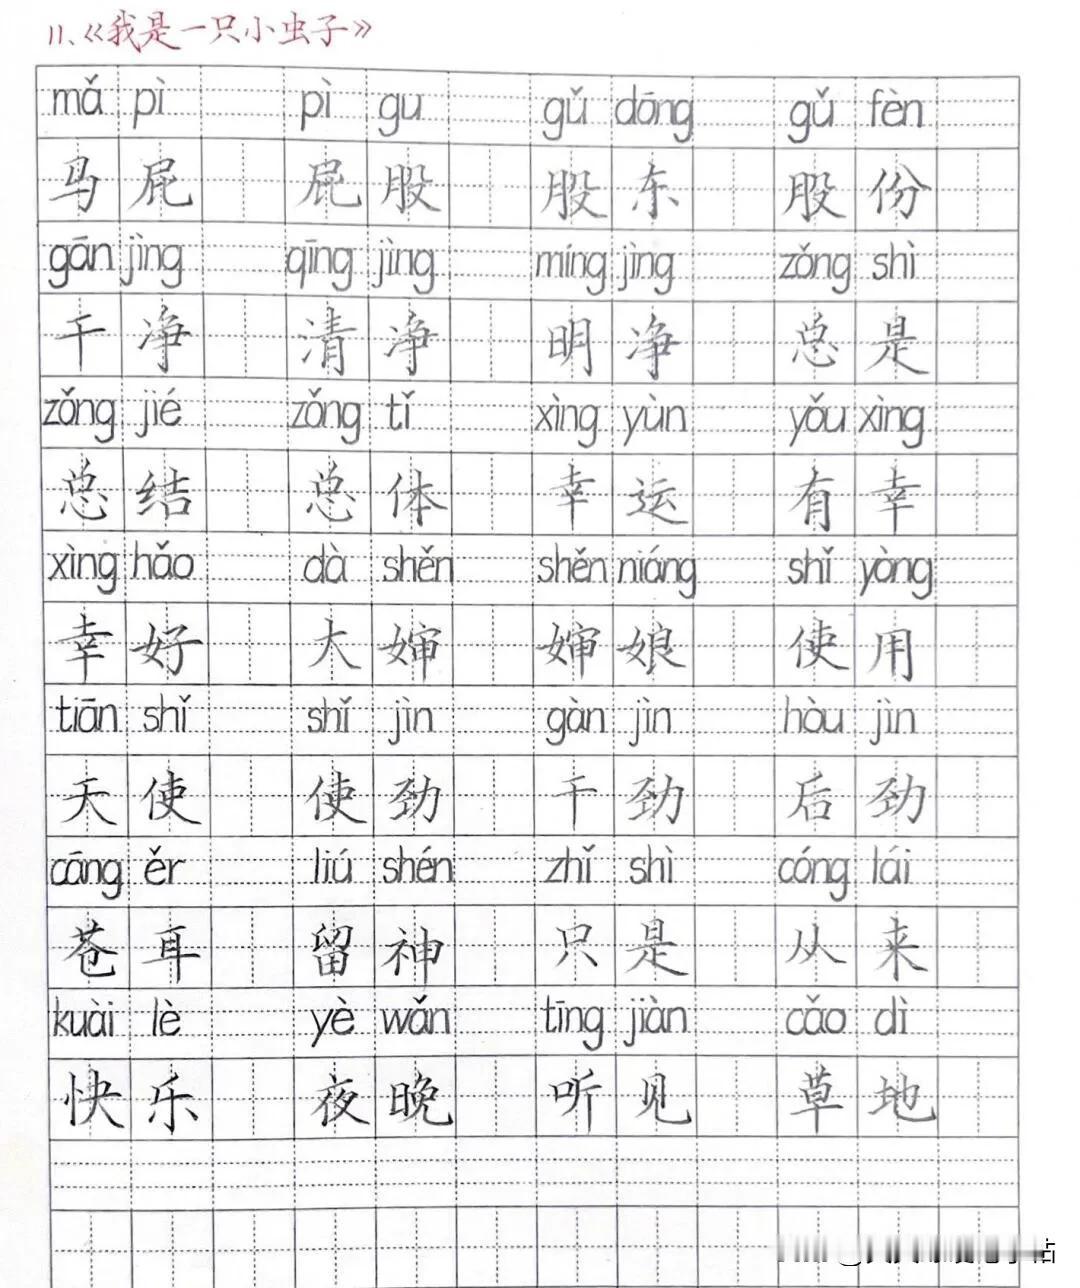 11、《我是一只小虫子》
mǎ pì pì gu gǔ dōng gǔ fèn
马屁 屁股 股东 股份
gān jìng qīng jìng míng jìng zǒng shì
干净 清净 明净 总是
zǒng jié zǒng tǐ xìng yùn yǒu xìng
总结 总体 幸运 有幸
xìng hǎo dà shěn shěn niáng shǐ yòng
幸好 大婶 婶娘 使用
tiān shǐ shǐ jìn gàn jìn hòu jìn
天使 使劲 干劲 后劲
cāng ěr liú shén zhǐ shì cóng lái
苍耳 留神 只是 从来
kuài lè yè wǎn tīng jiàn cǎo dì
快乐 夜晚 听见 草地